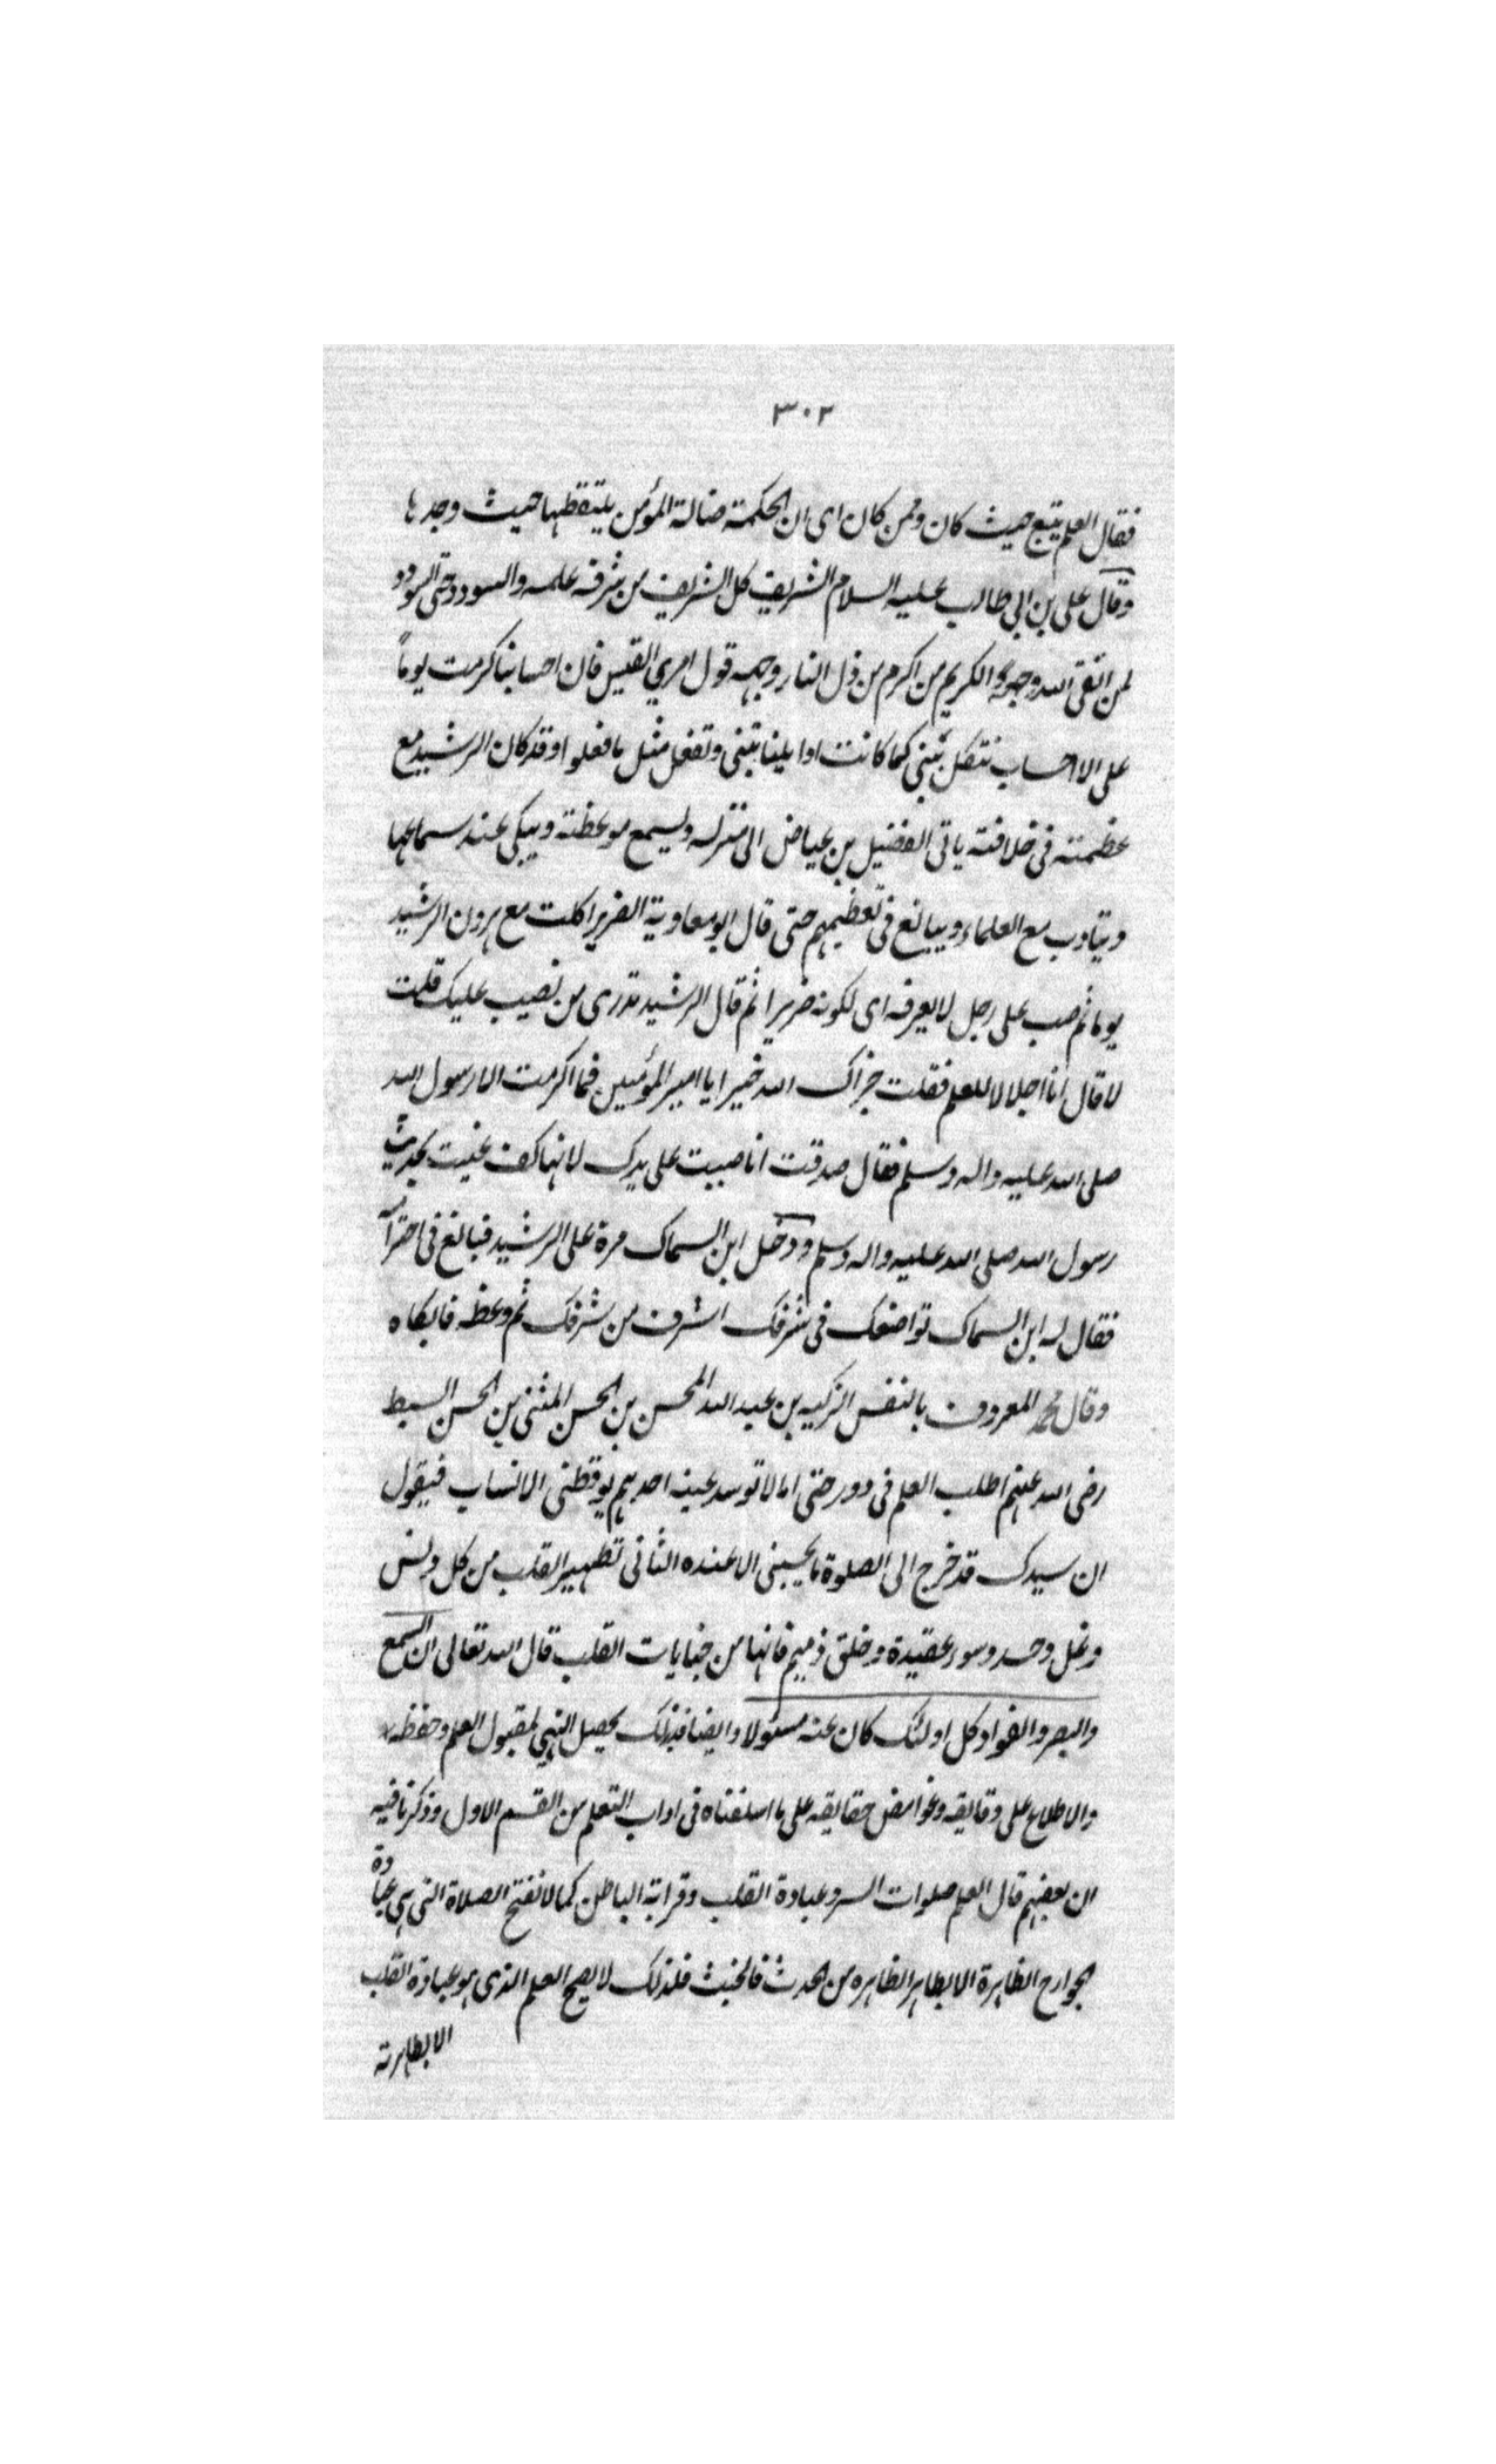 ٣٠٢
فقال العلم يتبع حيث كان وممن كان اى ان الحكمة ضالة المؤمن يلتقطها حيث وجدها
وقال على بن ابى طالب عليه السلام الشريف كل الشريف من شرفه علمه والسودد حق السودد
لمن اتقى الله وجهه والكريم من اكرم من ذل النار وجهه قول امرئ القيس فان احسابنا كرمت يوماً
على الاحساب نتكل نبنى كما كانت اوايلنا تبنى ونفعل مثل ما فعلوا وقد كان الرشيد مع
عظمته فى خلافته ياتى الفضيل بن عياض الى منزله ويسمع موعظته ويبكى عند سماعها
ويتادب مع العلماء ويبالغ فى تعظيمهم حتى قال ابو معاوية الضرير اكلت مع هرون الرشيد
يوما ثم صب على رجل لا يعرفه اى لكونه ضريرا ثم قال الرشيد تدرى من نصيب عليك قلت
لا قال انا اجلالا للعلم فقلت جزاك الله خيرا يا امير المؤمنين فما اكرمت الا رسول الله
صلى الله عليه واله وسلم فقال صدقت انا صببت على يدك لانها كف عنيت بحديث
رسول الله صلى الله عليه واله وسلم ودخل ابن السماك مرة على الرشيد فبالغ فى احترامه
فقال له ابن السماك تواضعك فى شرفك اشرف من شرفك ثم وعظه فابكاه
وقال محمد المعروف بالنفس الزكيه بن عبد الله المحسن بن الحسن المثنى بن الحسن السبط
رضى الله عنهم اطلب العلم فى دور حتى اما لا توسد عينه احدهم يوقظنى الانساب فيقول
ان سيدك قد خرج الى الصلوة ما يحسبنى الا عنده الثانى تطهير القلب من كل دنس
وغل وحسد وسوء عقيدة وخلق ذميم فانها من جنايات القلب قال الله تعالى ان السمع
والبصر والفواد كل اولئك كان عنه مسئولا وايضا فبذلك يحصل التهيى لقبول العلم وحفظه
والاطلاع على دقايقه وغوامض حقايقه على ما اسلفناه فى اداب التعلم من القسم الاول وذكرنا فيه
ان بعضهم قال العلم صلوات السر وعبادة القلب وقرابة الباطن كما لا تفتح الصلاة التى هى عبادة
الجوارح الظاهرة الا بطاهر الظاهره من الحدث فالخبث فلذلك لا يصح العلم الذى هو عبادة القلب
الا بطهارته